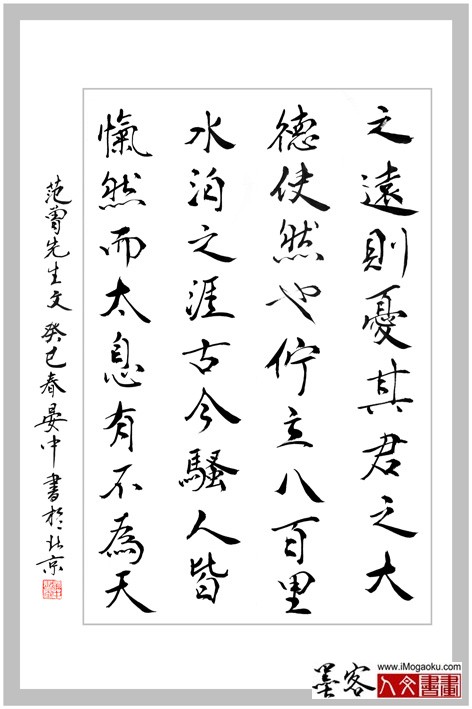 之遠則憂其君之大
德使然也佇立八百里
水泊之涯古今騷人皆
愾然而太息有不為天
范曾先生文 癸巳春晏中書於北京
www.iMogaoku.com
墨客人文書畫